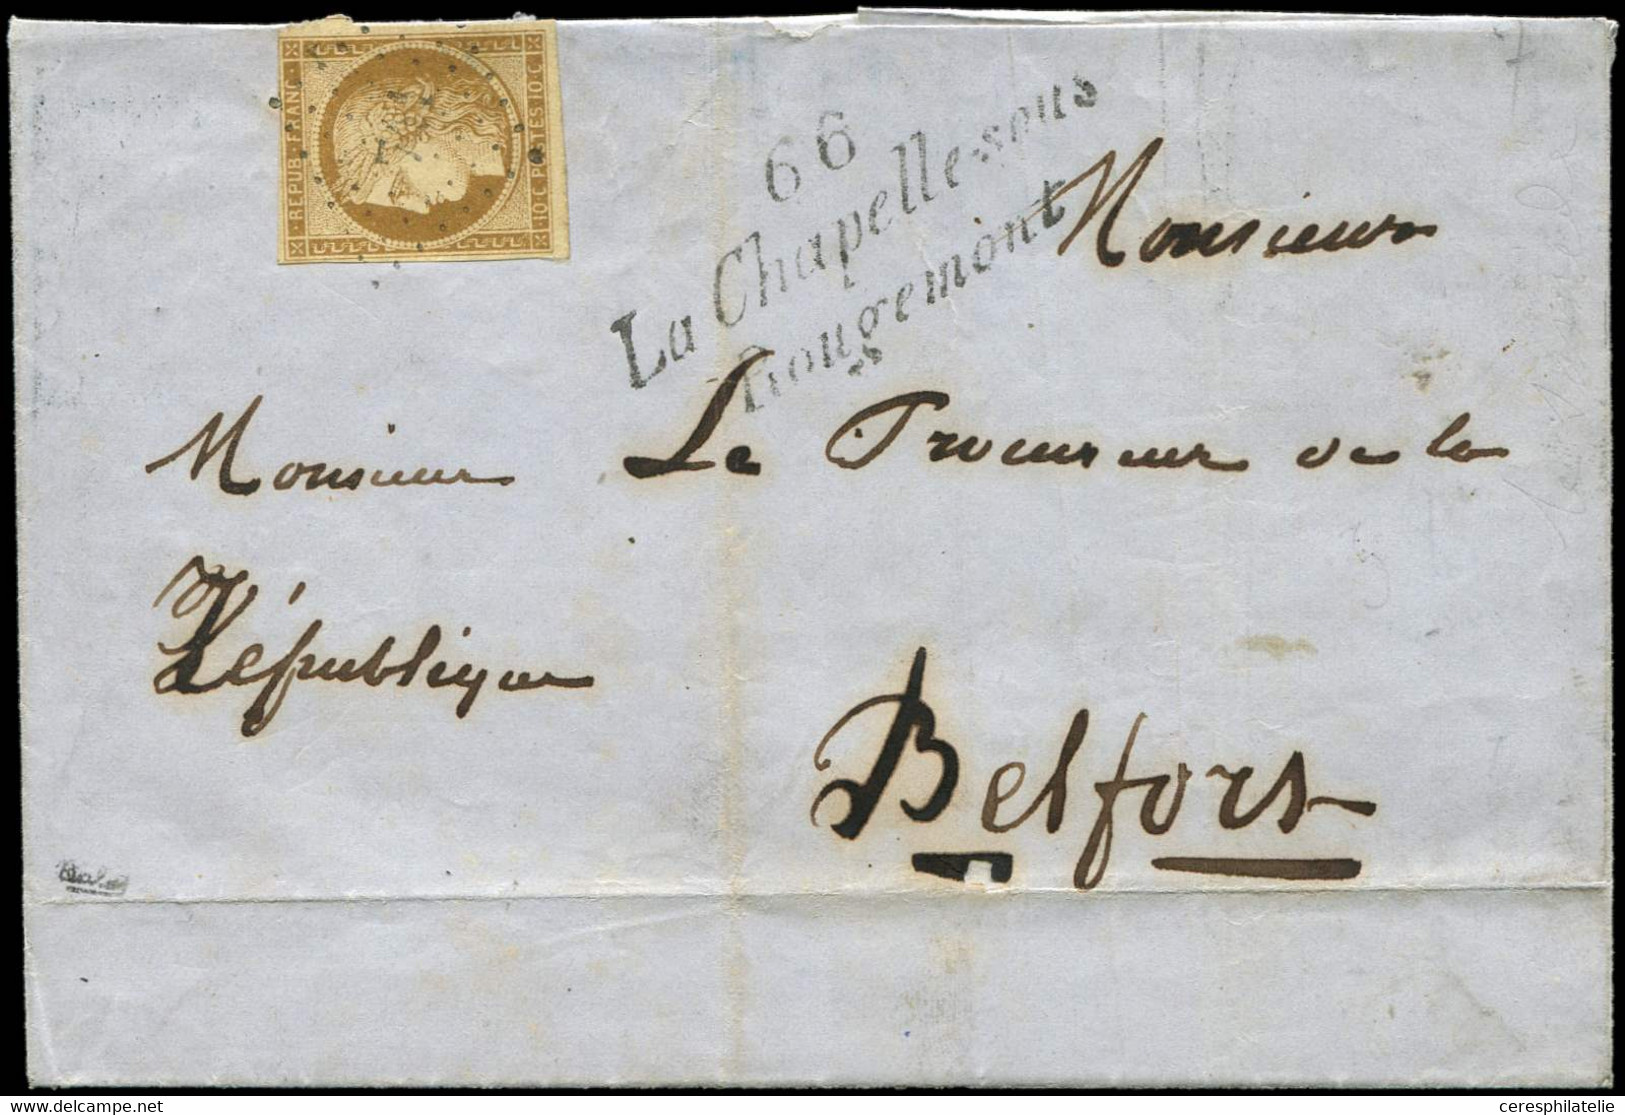 REPUB. FRANC.
10·C. POSTES 10·C.
66
La Chapelle-sous
Rougemont
Monsieur
Monsieur Le Procureur de la
République
Belfort
www.delcampe.net
ceresphilatelie